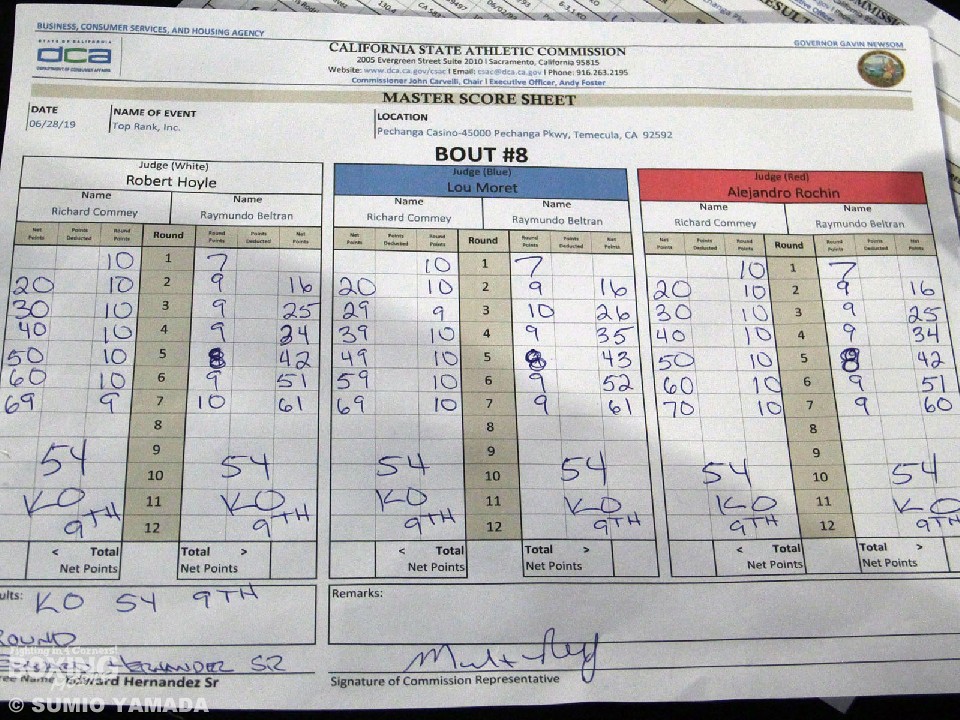 BUSINESS, CONSUMER SERVICES, AND HOUSING AGENCY
GOVERNOR GAVIN NEWSOM
STATE OF CALIFORNIA
dca
DEPARTMENT OF CONSUMER AFFAIRS
CALIFORNIA STATE ATHLETIC COMMISSION
2005 Evergreen Street Suite 2010 I Sacramento, California 95815
Website: www.dca.ca.gov/csac I Email: csac@dca.ca.gov I Phone: 916.263.2195
Commissioner John Carvelli, Chair I Executive Officer, Andy Foster
MASTER SCORE SHEET
DATE NAME OF EVENT LOCATION
06/28/19 Top Rank, Inc. Pechanga Casino-45000 Pechanga Pkwy, Temecula, CA 92592
BOUT #8
Judge (White) Judge (Blue) Judge (Red)
Robert Hoyle Lou Moret Alejandro Rochin
Name Name Name Name Name Name
Richard Commey Raymundo Beltran Richard Commey Raymundo Beltran Richard Commey Raymundo Beltran
Net Points Points Deducted Round Points Round Round Points Points Deducted Net Points Net Points Points Deducted Round Points Round Round Points Points Deducted Net Points Net Points Points Deducted Round Points Round Round Points Points Deducted Net Points
10 1 7 10 1 7 10 1 7
20 10 2 9 16 20 10 2 9 16 20 10 2 9 16
30 10 3 9 25 29 9 3 10 26 30 10 3 9 25
40 10 4 9 34 39 10 4 9 35 40 10 4 9 34
50 10 5 8 42 49 10 5 8 43 50 10 5 8 42
60 10 6 9 51 59 10 6 9 52 60 10 6 9 51
69 9 7 10 61 69 10 7 9 61 70 10 7 9 60
8 8 8
9 9 9
54 10 54 54 10 54 54 10 54
KO 11 KO KO 11 KO KO 11 KO
9TH 12 9TH 9TH 12 9TH 9TH 12 9TH
< Total Total > < Total Total > < Total Total >
Net Points Net Points Net Points Net Points Net Points Net Points
ults: KO 54 9TH
Remarks:
ROUND
HERNANDEZ SR
ree Name Edward Hernandez Sr
Signature of Commission Representative
Fighting in 4 Corners!
BOXING
© SUMIO YAMADA